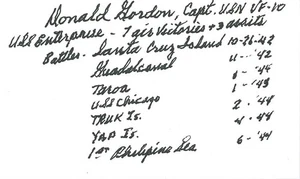 Donald Gordon, Capt. USN VF-10
USS Enterprise - 7 air victories + 3 assists
Battles - Santa Cruz Island 10-26-42
Guadalcanal 11- -42
Taroa 1- -44
USS Chicago 1- -43
TRUK Is. 2- '44
YAP Is. 4- '44
1st Philipine Sea 6- '44